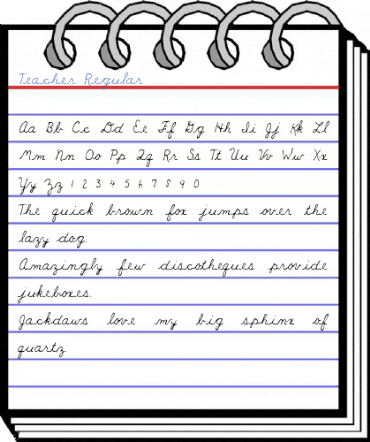 Teacher Regular
Aa Bb Cc Dd Ee Ff Gg Hh Ii Jj Kk Ll
Mm Nn Oo Pp Qq Rr Ss Tt Uu Vv Ww Xx
Yy Zz 1 2 3 4 5 6 7 8 9 0
The quick brown fox jumps over the
lazy dog.
Amazingly few discotheques provide
jukeboxes.
Jackdaws love my big sphinx of
quartz